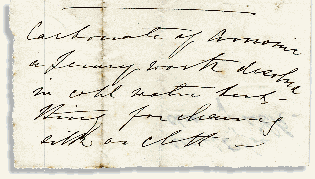 Carbonate of Amonia
a penny worth desolved
in cold water best
thing for cleaning
silk or cloth